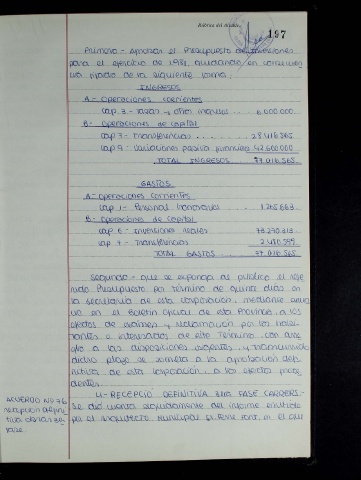 197
Primero - Aprobar el Presupuesto de Inversiones
para el ejercicio de 1981, quedando en
fijado de la siguiente forma:
INGRESOS
A - Operaciones corrientes
cap. 3 - Tasas y otros ingresos ... 6.000.000
B - Operaciones de capital
cap 7 - Transferencias ... 28.416.565
cap 9 - Variaciones pasivos financieros 42.600.000
TOTAL INGRESOS 77.016.565
GASTOS
A - Operaciones corrientes
cap 1 - Personal
B - Operaciones de Capital
cap 6 - Inversiones reales
cap. 7 - Transferencias
TOTAL GASTOS 77.016.565
Segundo - que se exponga al público el
Presupuesto por término de quince días en
la secretaría de esta corporación, mediante
en el Boletín Oficial de esta Provincia, a los
efectos de examen y reclamación por los habi-
tantes e interesados de este Término, con arre
glo a las disposiciones vigentes, y transcurrido
dicho plazo se someta a la aprobación defi-
nitiva de esta corporación, a los efectos proce
dentes.
ACUERDO Nº 76
recepción defini
tiva
fase.
4 - RECEPCIÓ DEFINITIVA FASE
Se dió cuenta seguidamente del informe emitido
por el Arquitecto Municipal Sr. Font, en el que